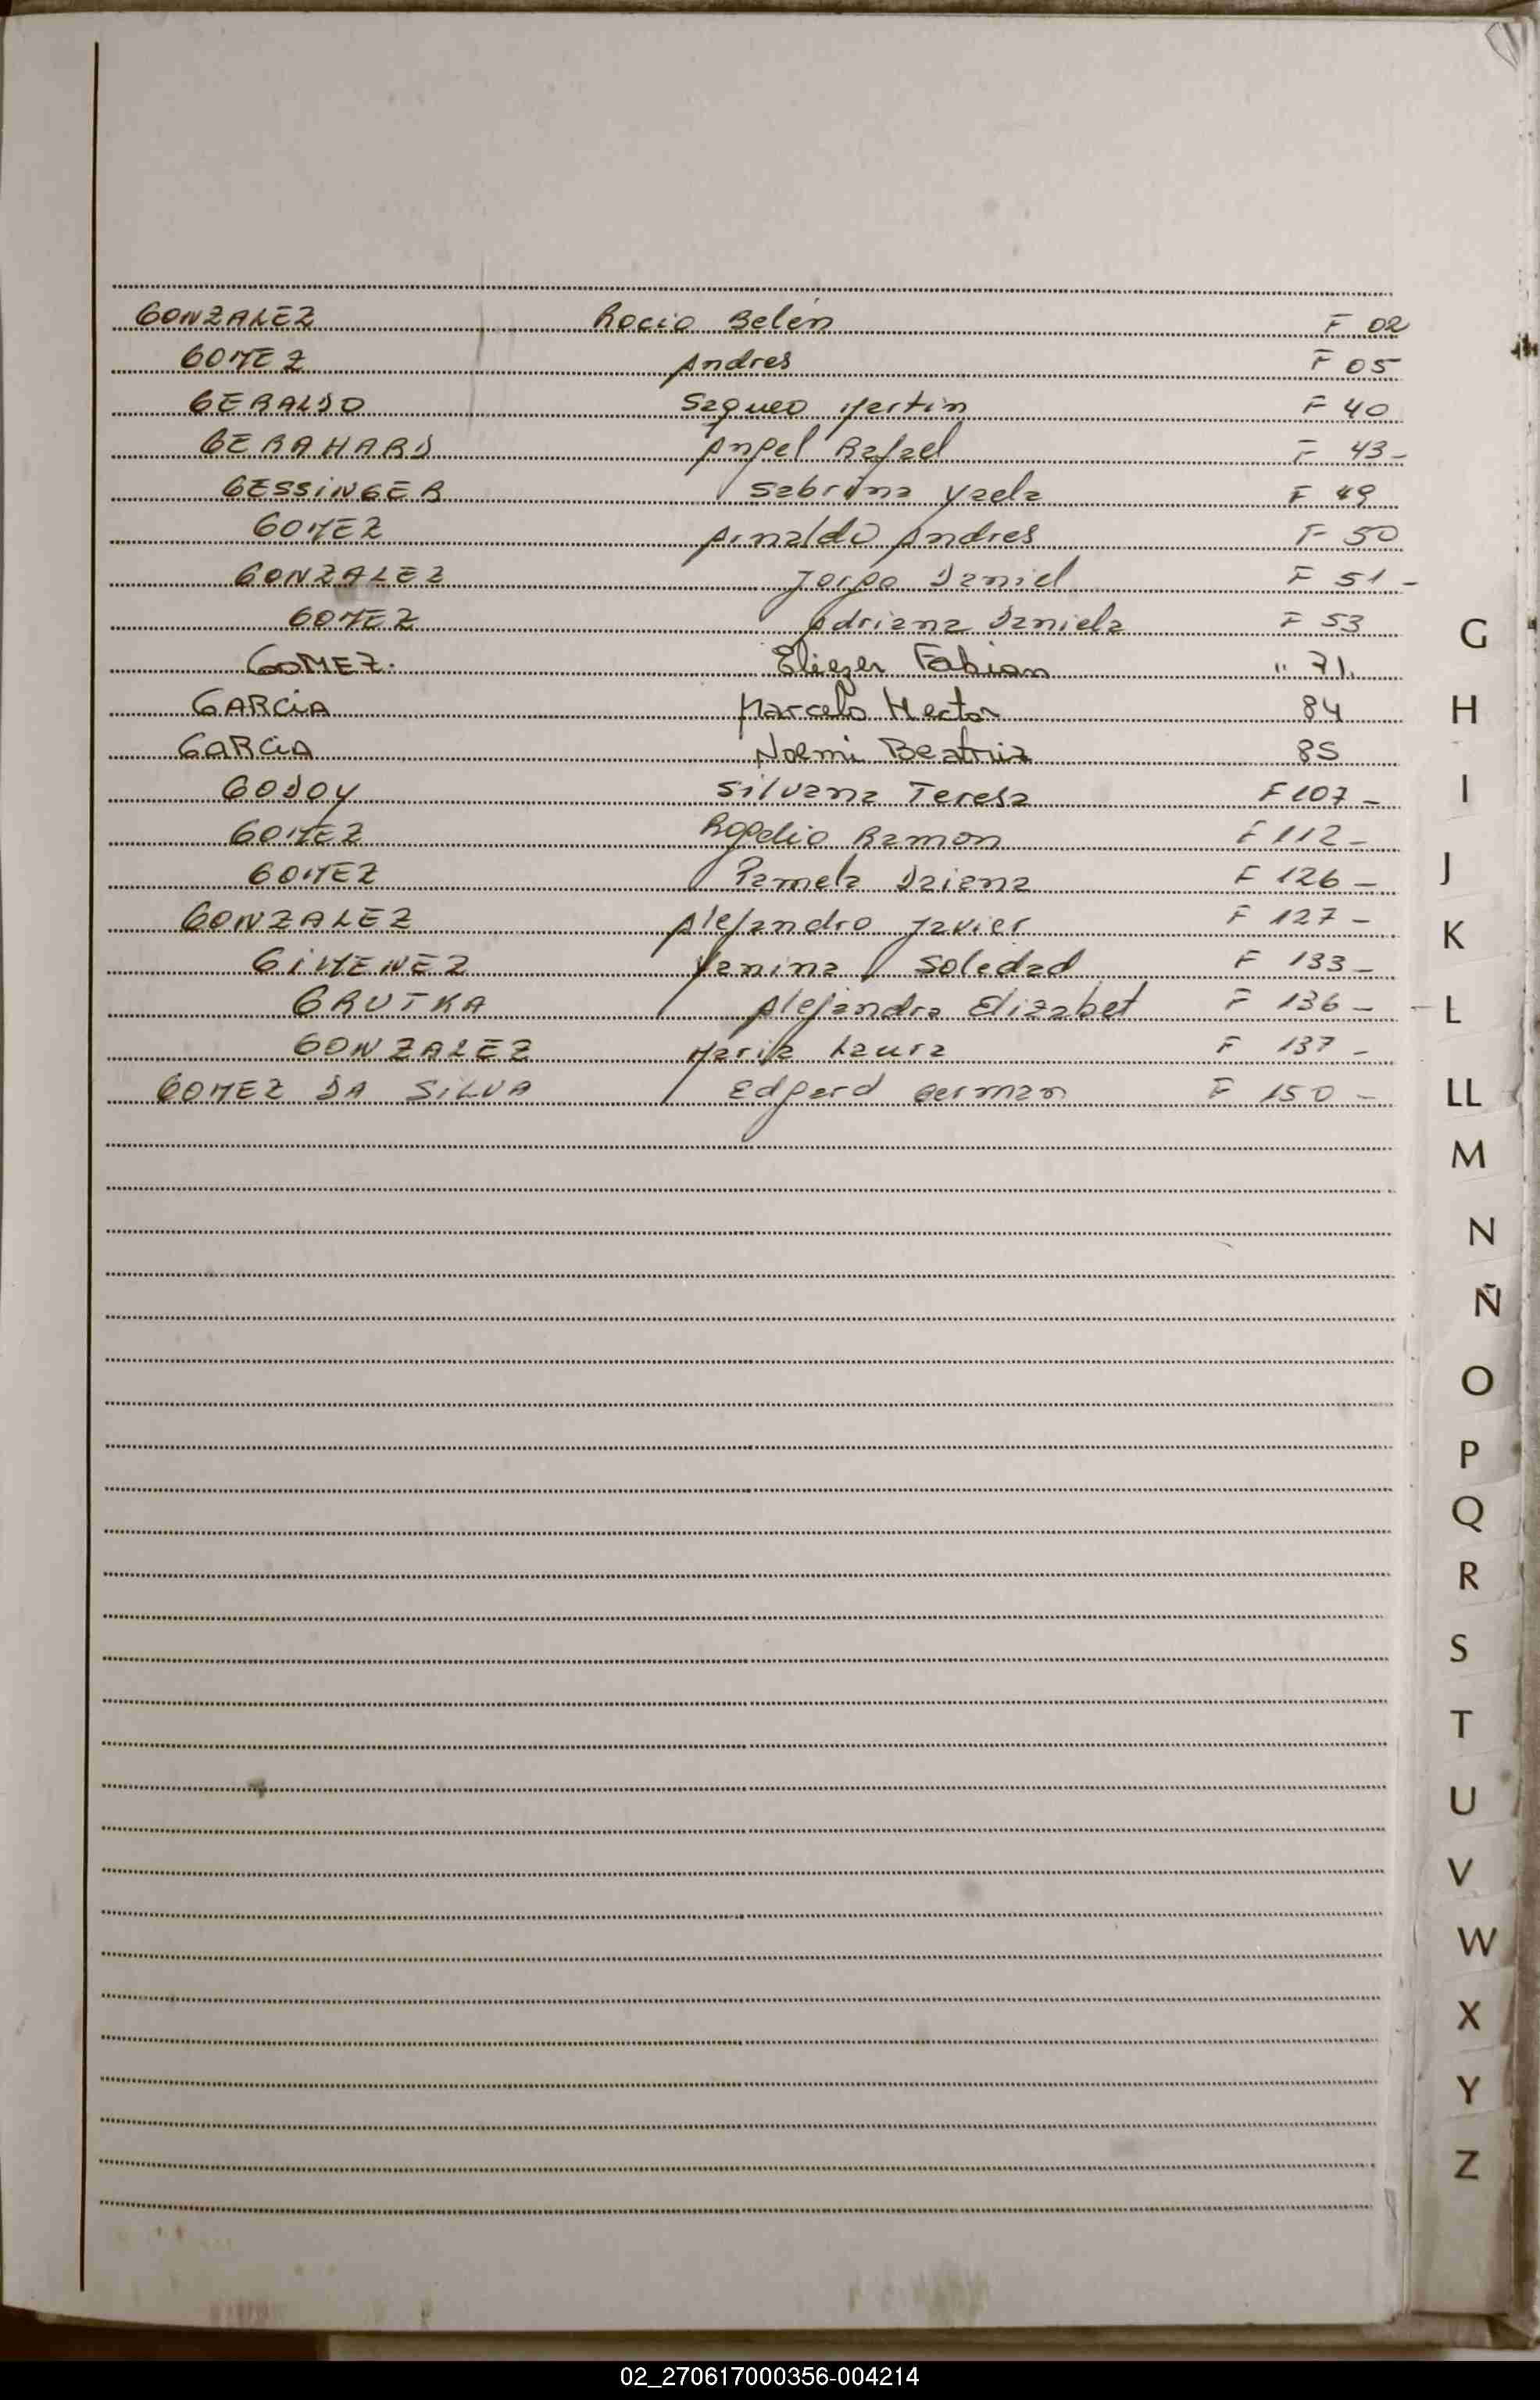 GONZALEZ Rocio Belén F 02
GOMEZ Andres F 05
GERALDO Martin F 40
GERAHARD Angel Rafael F 43-
GESSINGER Sabrina Yaela F 49
GOMEZ Arnaldo Andres F 50
GONZALEZ Jorge Daniel F 51-
GOMEZ Adriana Daniela F 53
GOMEZ. Eliezer Fabian " 71.
GARCIA Marcelo Hector 84
GARCIA Noemi Beatriz 85
GODOY Silvana Teresa F 107-
GOMEZ Rogelio Ramon F 112-
GOMEZ Pamela Daiana F 126-
GONZALEZ Alejandro Javier F 127-
GIMENEZ Yanina Soledad F 133-
GRUTKA Alejandra Elizabet F 136-
GONZALEZ Maria Laura F 137-
GOMEZ DA SILVA Edgard German F 150-
G
H
I
J
K
L
LL
M
N
Ñ
O
P
Q
R
S
T
U
V
W
X
Y
Z
02_270617000356-004214